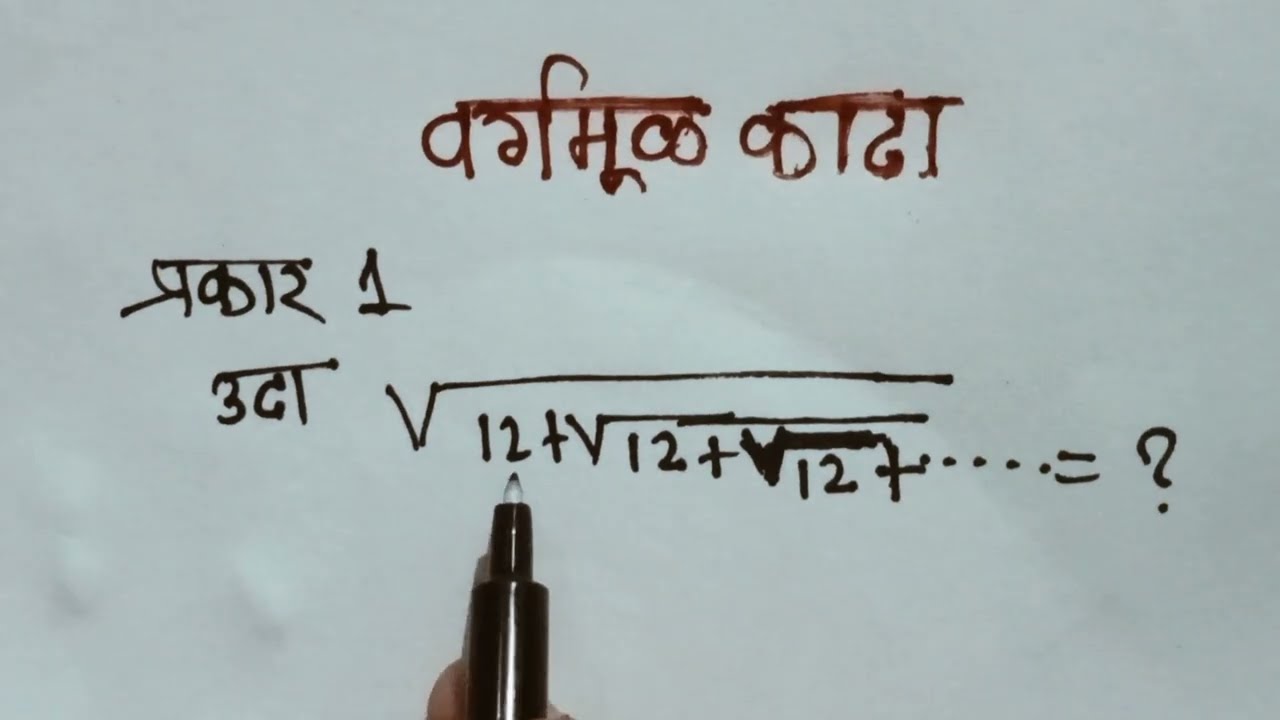 वर्गमूळ काढा
प्रकार 1
उदा √12+√12+√12+.....= ?